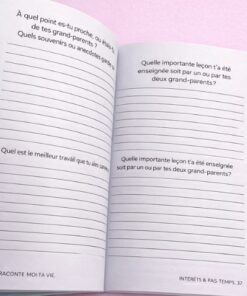 À quel point es-tu proche, ou étais-tu,
de tes grand-parents ?
Quels souvenirs ou anecdotes
Quel est le meilleur travail que tu aies
RACONTE MOI TA VIE.
Quelle importante leçon t'a été
enseignée soit par un ou par tes
deux grand-parents?
Quelle importante leçon t'a été enseignée
soit par un ou par tes deux grand-parents?
INTERÊTS & PAS TEMPS. 37